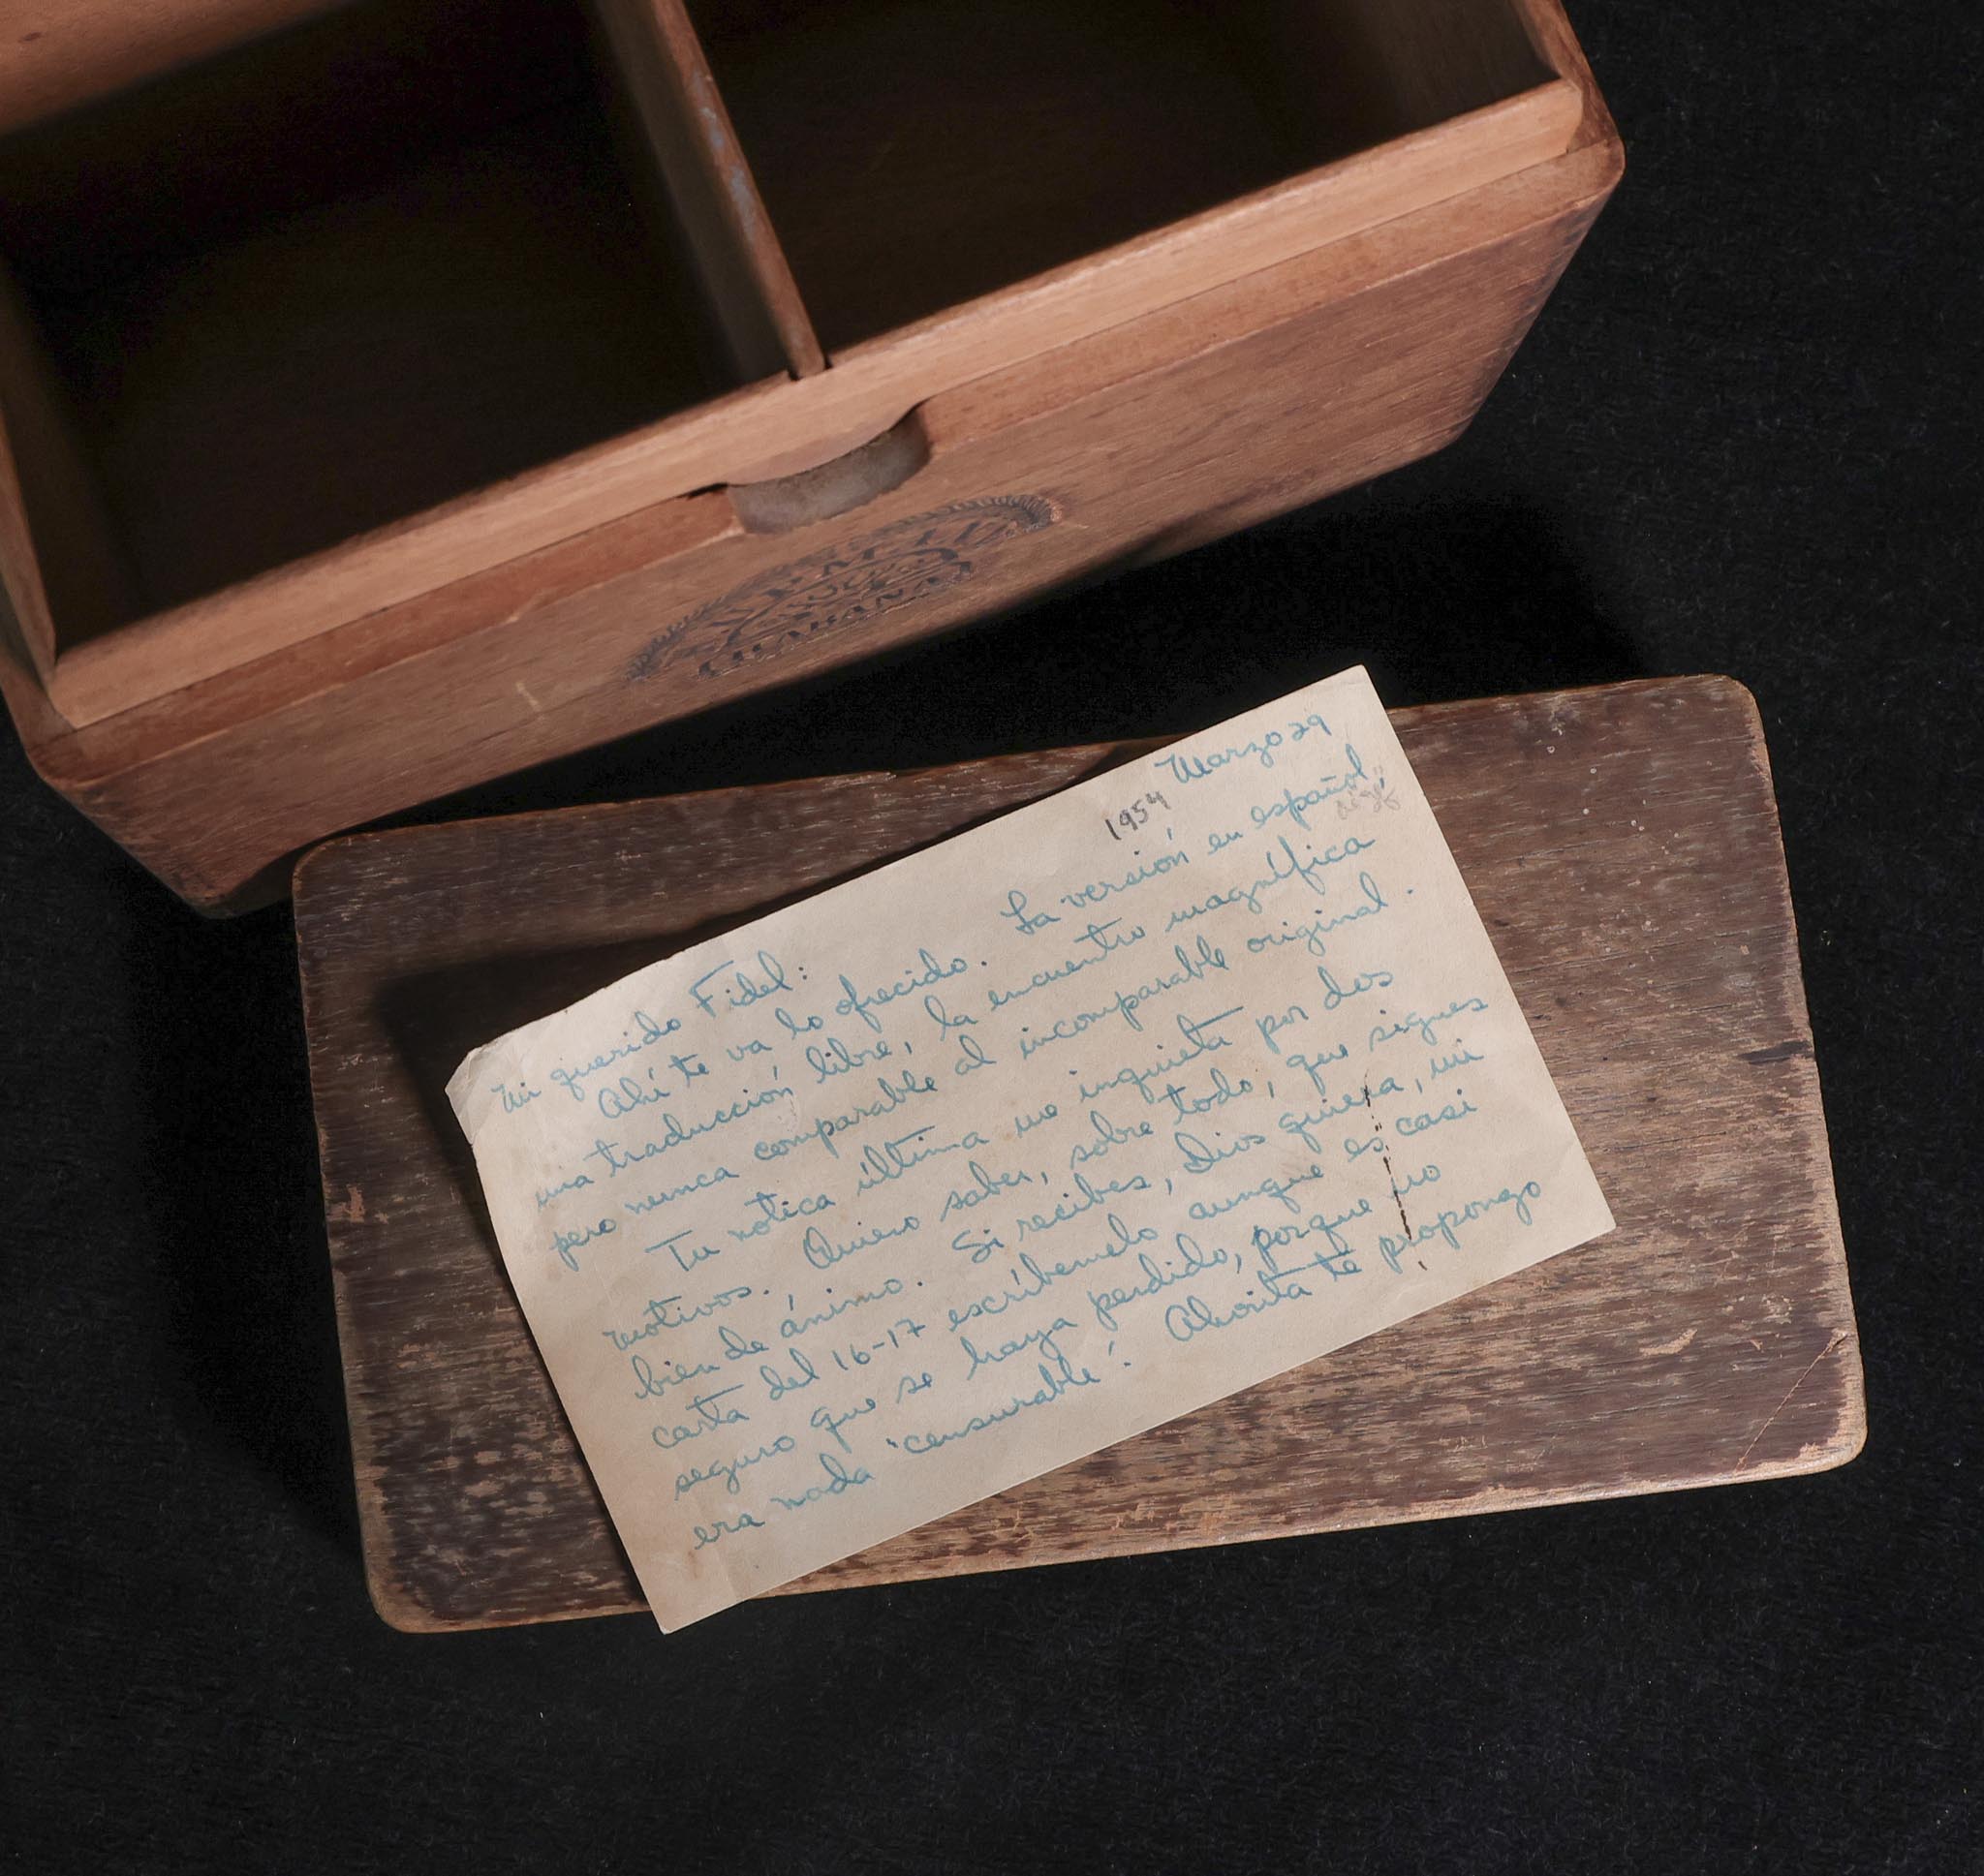 HABANA
Marzo 29
1954
Mi querido Fidel:
Ahí te va lo ofrecido. La versión en español,
una traducción libre, la encuentro magnífica
pero nunca comparable al incomparable original.
Tu notica última me inquieta por dos
motivos. Quiero saber, sobre todo, que sigues
bien de ánimo. Si recibes, Dios quiera, mi
carta del 16-17 escríbemelo aunque es casi
seguro que se haya perdido, porque no
era nada "censurable". Ahorita te propongo